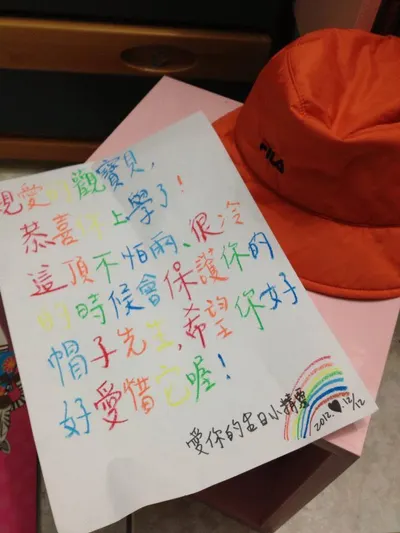 親愛的觀寶貝,
恭喜你上學了!
這頂不怕雨、很冷
的時候會保護你的
帽子先生,希望你好
好愛惜它喔!
愛你的生日小精靈
2012♥12/12
FILA